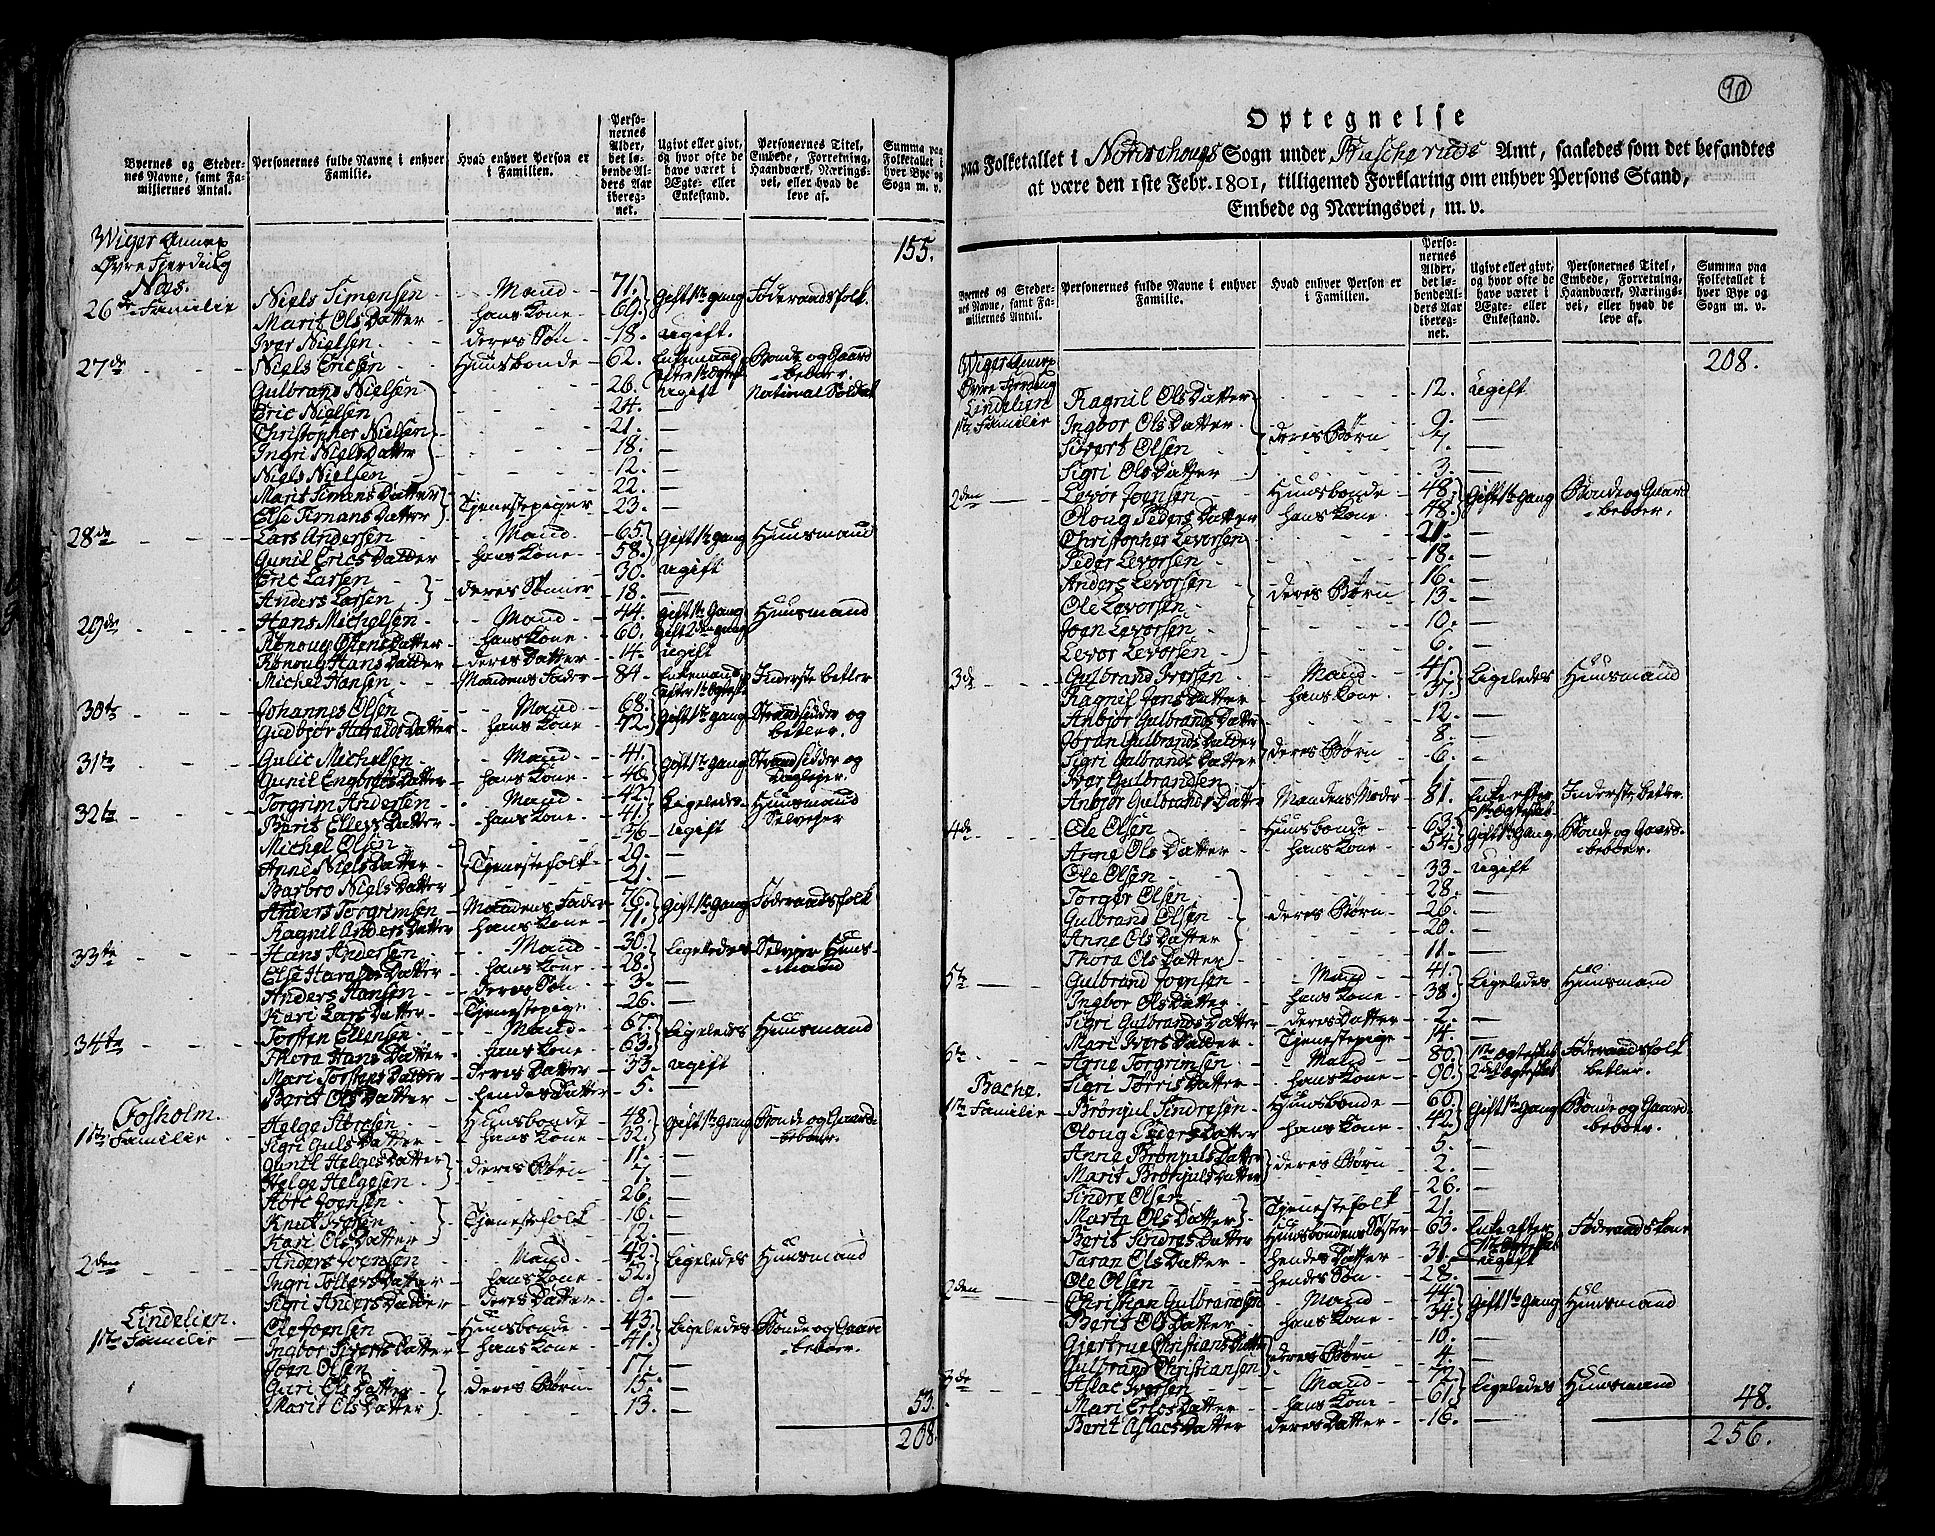 Byernes og Steder-
nes Navne, samt Fa-
miliernes Antal.
Personernes fulde Navne i enhver
Familie.
Hvad enhver Person er
i Familien.
Perso-
nernes
Alder,
det lø-
bende Al-
ders Aar
iberegnet.
Ugivt eller givt,
og hvor ofte de
have været i
Ægte- eller
Enkestand.
Personernes Titel,
Embede, Forretning,
Haandværk, Nærings-
vei, eller hvad de
leve af.
Summa paa
Folketallet i
hver Bye og
Sogn m. v.
Wiger Annex 155.
Øvre Fjerding
Næs.
26de Familie Niels Simensen - - Mand - 71. Gift 1te gang Föderaadsfolk
Marit Ols Datter - hans Kone - 69.
Iver Nielsen - deres Søn - 18. ugift.
27de Niels Ericsen Huusbonde - 62. Enkemand Bonde og Gaard
efter 1te Ægtesk. beboer.
Gulbrand Nielsen 26. ugift National Soldat
Eric Nielsen 24. —
Christopher Nielsen 21. —
Ingri Niels Datter 18. —
Niels Nielsen 12. —
Marit Simens Datter 22. —
Else Simans Datter Tjenestepiger 23. —
28de Lars Andersen Mand 65. Gift 1te gang Huusmand
Gunil Erics Datter hans Kone 58.
Eric Larsen 30. ugift
Anders Larsen deres Sønner 18. —
29de Hans Michelsen Mand 44. Gift 1te Gang Huusmand
Rønoug Ostens Datter hans Kone 60. Gift 2den gang
Rønoug Hans Datter deres Datter 14. ugift
Michel Hansen Mandens Fader 84. Enkemand Inderste betler
efter 1te Ægtesk.
30te Johannes Olsen Mand 68. Gift 1te gang Strandsidder og
Gudbjør Haralds Datter hans Kone 72. betler.
31te Gulic Michelsen Mand 41. Gift 1te gang Strandsidder og
Gunil Engebrets Datter hans Kone 46. Daglejer.
32te Torgrim Andersen Mand 42. Ligeledes Huusmand
Berit Ellevs Datter hans Kone 41. Selvejer
Michel Olsen 36. ugift
Anne Niels Datter Tjenestefolk 29. —
Barbro Niels Datter 21. —
Anders Torgrimsen Mandens Fader 76. Gift 1te gang Föderaadsfolk
Ragnil Anders Datter hans Kone 71.
33te Hans Andersen Mand 30. Ligeledes Selvejer Huus-
Else Haralds Datter hans Kone 28. mand
Anders Hansen deres Søn 3. —
Kari Lars Datter Tjenestepige 26. —
34te Torsten Ellensen Mand 67. Ligeledes Huusmand
Thora Hans Datter hans Kone 63.
Mari Torstens Datter deres Datter 33. ugift
Berit Ols Datter hendes Datter 5.
Fosholm.
1te Familie Helge Støresen Huusbonde 48. Gift 1te gang Bonde og Gaard-
Sigri Guls Datter hans Kone 32. beboer.
Gunil Helges Datter 11. —
Helge Helgesen deres Børn 7. —
Joensen 26. —
Knut Iversen Tjenestefolk 16. —
Kari Ols Datter 12. —
2den Anders Joensen Mand 42. Ligeledes Huusmand
Ingri Tollefs Datter hans Kone 52.
Sigri Anders Datter deres Datter 9. —
Lindelien.
1te Familie Ole Joensen Huusbonde 43. Ligeledes Bonde og Gaard
Ingbor Siverts Datter hans Kone 41. beboer.
Joen Olsen 17. —
Guri Ols Datter deres Børn 15. —
Marit Ols Datter 13. — 53.
208.
90
Optegnelse
paa Folketallet i Nordrehougs Sogn under Buscheruds Amt, saaledes som det befandtes
at være den 1ste Febr. 1801, tilligemed Forklaring om enhver Persons Stand,
Embede og Næringsvei, m. v.
Byernes og Steder-
nes Navne, samt Fa-
miliernes Antal.
Personernes fulde Navne i enhver
Familie.
Hvad enhver Person er
i Familien.
Perso-
nernes
Alder,
det lø-
bende Al-
ders Aar
iberegnet.
Ugivt eller givt,
og hvor ofte de
have været i
Ægte- eller
Enkestand.
Personernes Titel,
Embede, Forretning,
Haandværk, Nærings-
vei, eller hvad de
leve af.
Summa paa
Folketallet i
hver Bye og
Sogn m. v.
Wiger Annex 208.
Øvre Fjerding
Lindelien Ragnil Ols Datter 12. ugift
1te Familie Ingbor Ols Datter 9. —
Sivert Olsen deres Børn 7. —
Sigri Ols Datter 3. —
2den Levor Joensen Huusbonde 48. Gift 1te Gang Bonde og Gaard
Oloug Peders Datter hans Kone 48. beboer.
Christopher Levorsen 21. —
Peder Levorsen 18. —
Anders Levorsen deres Børn 16. —
Ole Levorsen 13. —
Joen Levorsen 10. —
Levor Levorsen 6. —
3de Gulbrand Iversen Mand 41. Ligeledes Huusmand
Ragnil Jons Datter hans Kone 37.
Anbjør Gulbrands Datter 12. —
Joran Gulbrands Datter deres Børn 8. —
Sigri Gulbrands Datter 6. —
Iver Gulbrandsen 1. —
Anbjør Gulbrands Datter Mandens Moder 81. Enke efter Inderste, betler.
1te Ægteskab
4de Ole Olsen Huusbonde 63. Gift 1te Gang Bonde og Gaard-
Anne Ols Datter hans Kone 54. beboer.
Ole Olsen 33. ugift
Torger Olsen 28. —
Gulbrand Olsen deres Børn 26. —
Anne Ols Datter 20. —
Thora Ols Datter 11. —
5te Gulbrand Joensen Mand 41. Ligeledes Huusmand
Ingbor Ols Datter hans Kone 38.
Sigri Gulbrands Datter deres Datter 2. —
Mari Ivers Datter Tjenestepige 14. —
6te Arne Torgrimsen Mand 80. 1te Ægteskab Föderaadsfolk
Sigri Torris Datter hans Kone 90. 2det Ægteskab betler.
Bache.
1te Familie Brønjul Sindresen Huusbonde 60. Gift 1te Gang Bonde og Gaard
Oloug Peders Datter hans Kone 42. beboer.
Anne Brønjuls Datter 5. —
Marit Brønjuls Datter deres Børn 2. —
Sindre Olsen 26. —
Marte Ols Datter Tjenestefolk 21. —
Berit Sindres Datter Huusbondens Søster 63. Enke efter Föderaadskone
1te Ægteskab
Taran Ols Datter hendes Datter 31. ugift
Ole Olsen hendes Søn 28. —
2den Christian Gulbrandsen Mand 44. Gift 1te Gang Huusmand
Berit Ols Datter hans Kone 34.
Gjertrue Christians Datter 10. —
Gulbrand Christiansen deres Børn 4. —
3de Aslac Iversen Mand 42. Ligeledes Huusmand
Mari Erlos Datter hans Kone 61. 48.
Berit Aslacs Datter deres Datter 16. — 256.